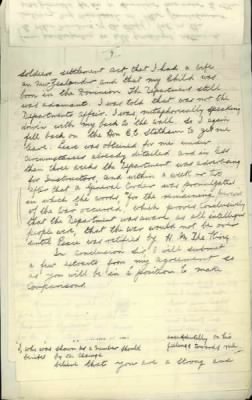 soldiers settlement act, that I had a wife
an New Zealander and that my child was
born in the Dominion. The Department still
was adamant. I was told that was not the
Departments affair. I was, metaphorically speaking
driven with my back to the wall. So I again
fell back on the Hon C. E. Statham to get me
leave. Leave was obtained for me under
circumstances already detailed and in less
than three weeks the Department was advertising
for Instructors, and within a week or two
after that a General Order was promulgated
in which the words "for the remaining period
of the war" occurred, which proves conclusively
that the Department was aware, as all intelligent
people were, that the war would not be over
until Peace was ratified by H. M. The King.
In conclusion Sir I will submit
a few extracts from my agreement so
as you will be in a position to make
comparisons
who was shown as a Gunner should
by
believe that you are a strong and